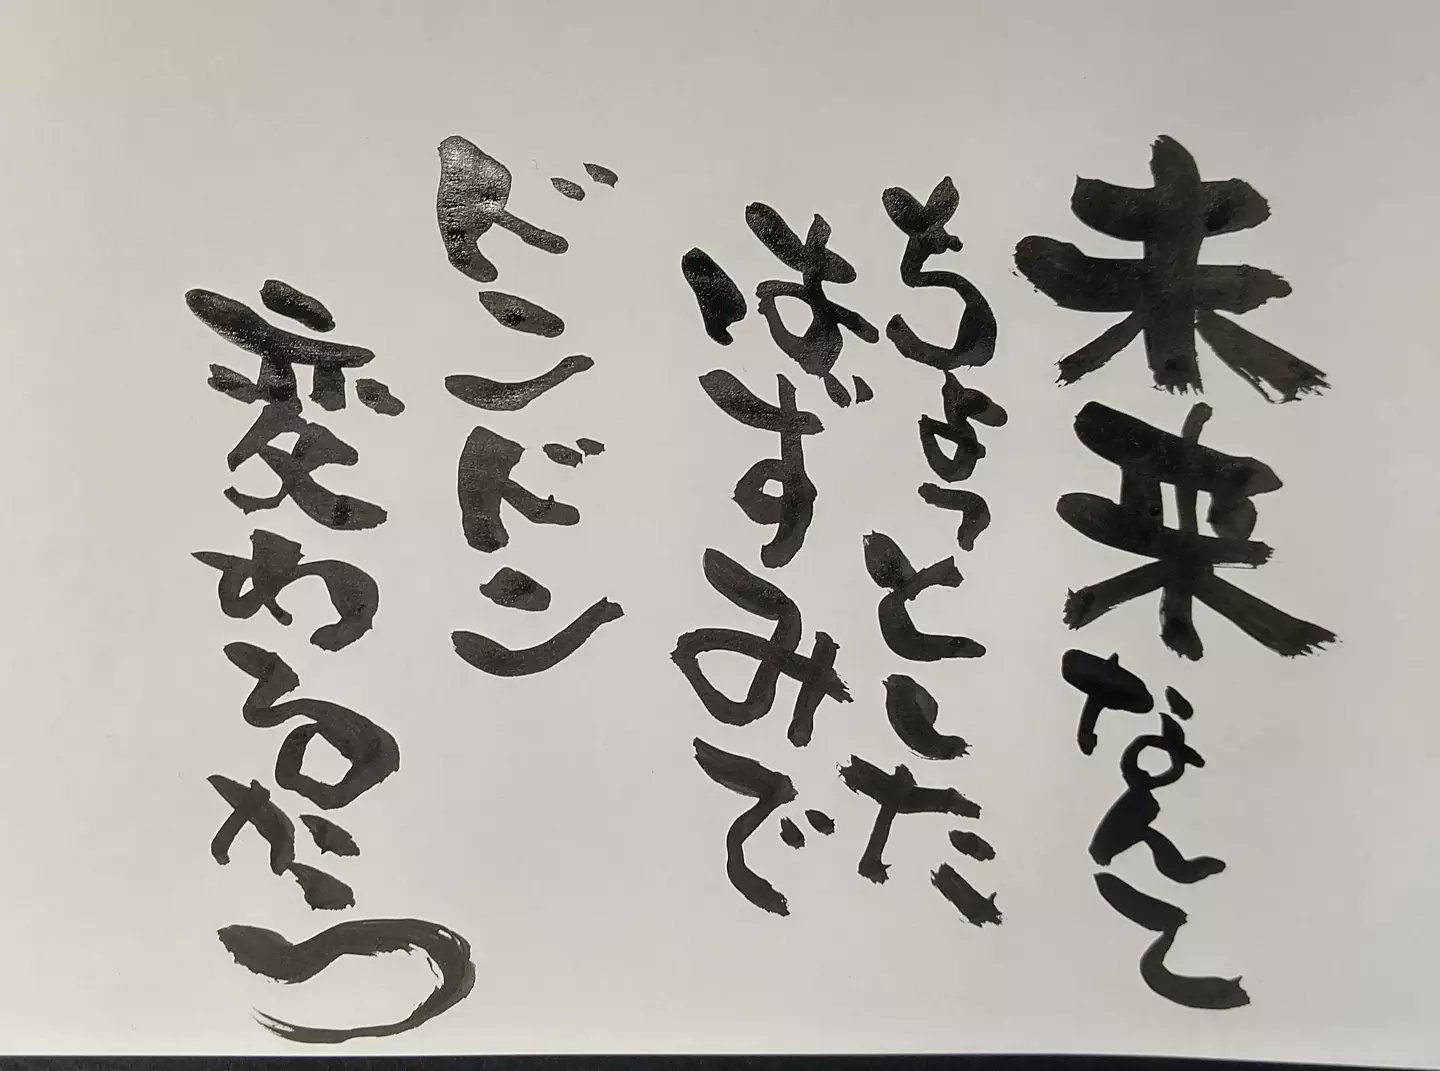 未来なんて
ちょっとしだ
はずみで
ドンドン
変めるがつ